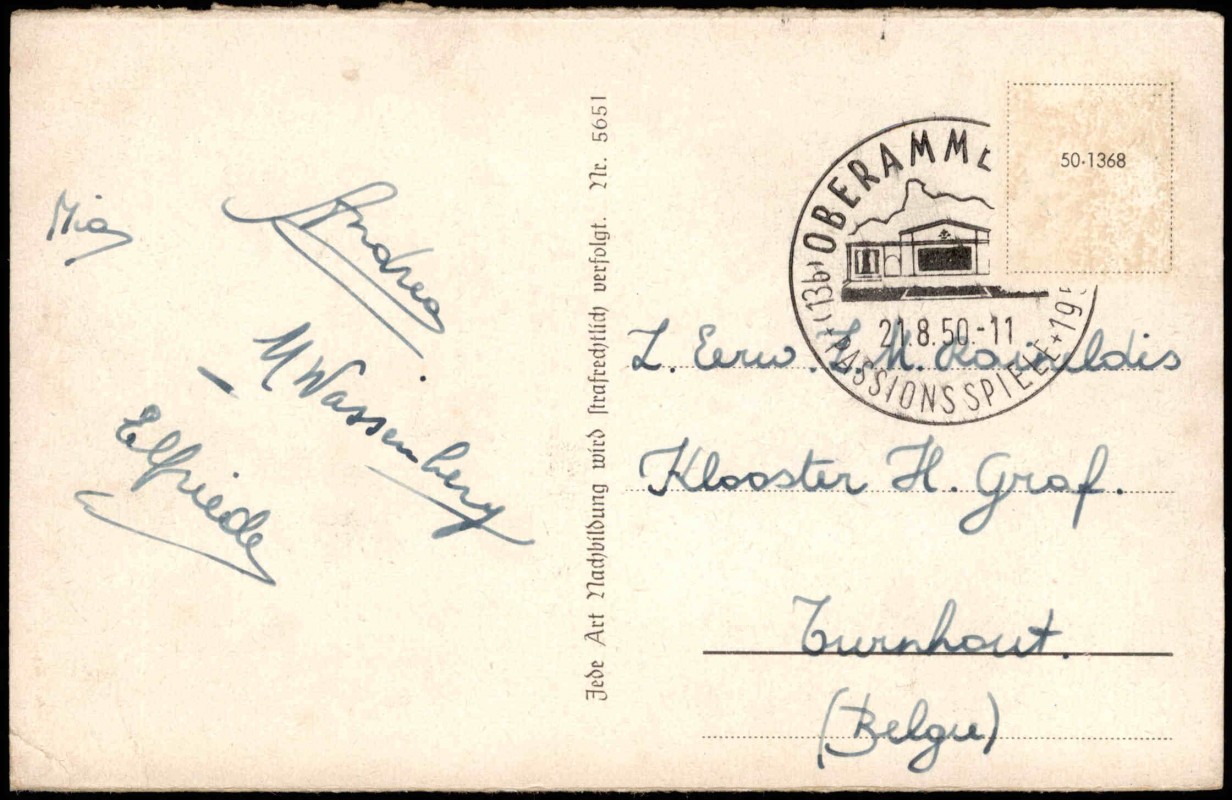 Mia
Andrea
M Wassenberg
Elfriede
Jede Art Nachbildung wird strafrechtlich verfolgt. Nr. 5651
50·1368
(13b) OBERAMME
21.8.50.-11
+ PASSIONSSPIELE + 19
Z. Eerw. Z. M.
Klooster H. Graf.
Turnhout.
(Belgie)